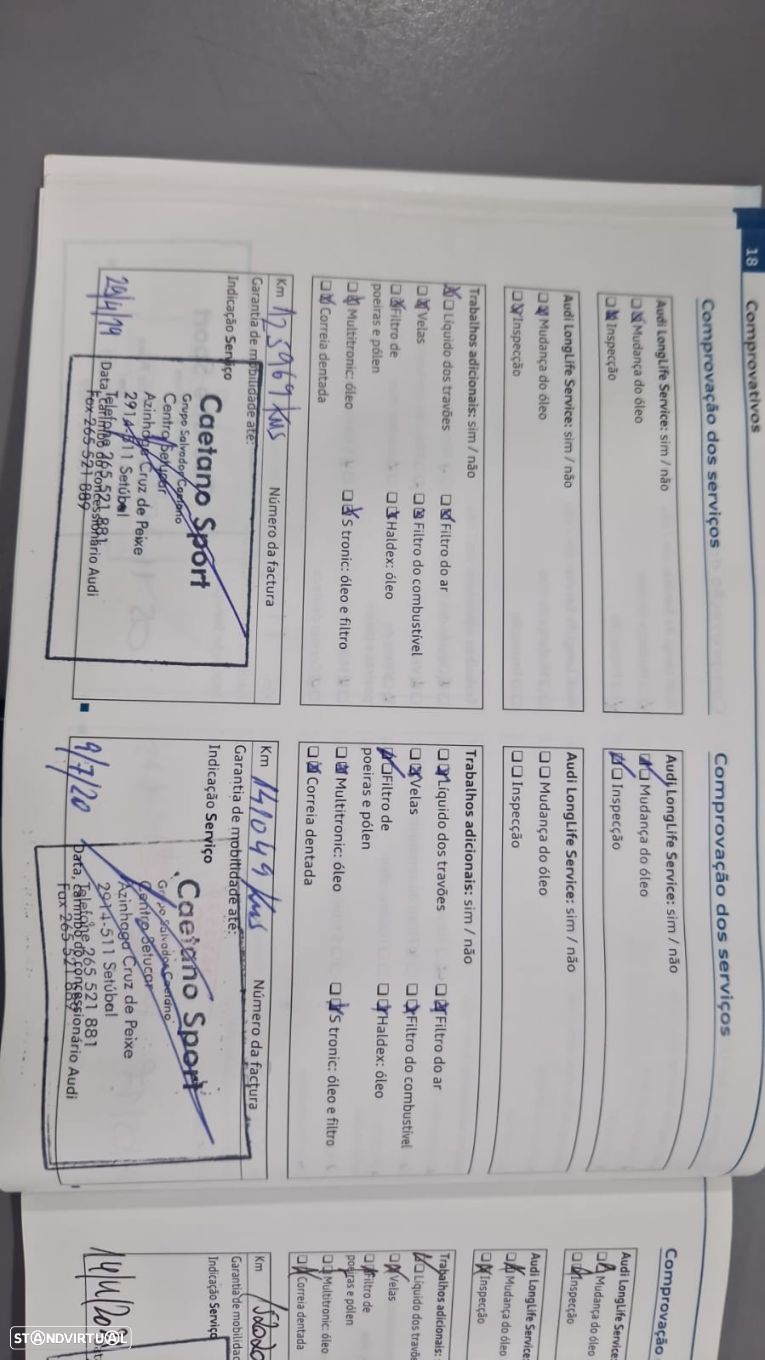 18
Comprovativos
Comprovação dos serviços
Audi LongLife Service: sim / não
Mudança do óleo
Inspecção
Audi LongLife Service: sim / não
Mudança do óleo
Inspecção
Trabalhos adicionais: sim / não
Líquido dos travões
Filtro do ar
Velas
Filtro do combustível
Filtro de
poeiras e pólen
Haldex: óleo
Multitronic: óleo
S tronic: óleo e filtro
Correia dentada
Km 125969 Kms
Número da factura
Garantia de mobilidade até:
Indicação Serviço
Caetano Sport
Grupo Salvador Caetano
Centro Setucar
Azinhaga Cruz de Peixe
2914-511 Setúbal
Telefone 265 521 881
Fax 265 521 889
Data, carimbo do concessionário Audi
Comprovação dos serviços
Audi LongLife Service: sim / não
Mudança do óleo
Inspecção
Audi LongLife Service: sim / não
Mudança do óleo
Inspecção
Trabalhos adicionais: sim / não
Líquido dos travões
Filtro do ar
Velas
Filtro do combustível
Filtro de
poeiras e pólen
Haldex: óleo
Multitronic: óleo
S tronic: óleo e filtro
Correia dentada
Km 141049 Kms
Número da factura
Garantia de mobilidade até:
Indicação Serviço
9/7/20
Caetano Sport
Grupo Salvador Caetano
Centro Setucar
Azinhaga Cruz de Peixe
2914-511 Setúbal
Telefone 265 521 881
Fax 265 521 889
Data, carimbo do concessionário Audi
Comprovação
Audi LongLife Service:
Mudança do óleo
Inspecção
Audi LongLife Service:
Mudança do óleo
Inspecção
Trabalhos adicionais:
Líquido dos travõe
Velas
Filtro de
poeiras e pólen
Multitronic: óleo
Correia dentada
Km
Garantia de mobilidad
Indicação Serviço
STANDVIRTUAL